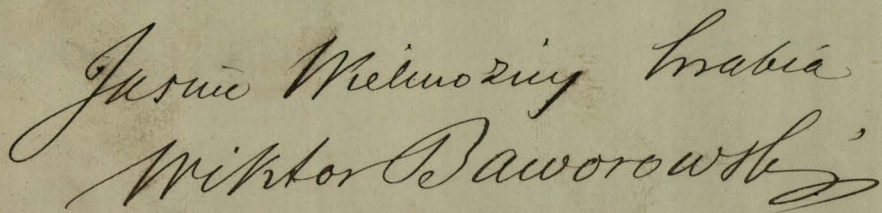 Jaśnie Wielmożny hrabia
Wiktor Baworowski